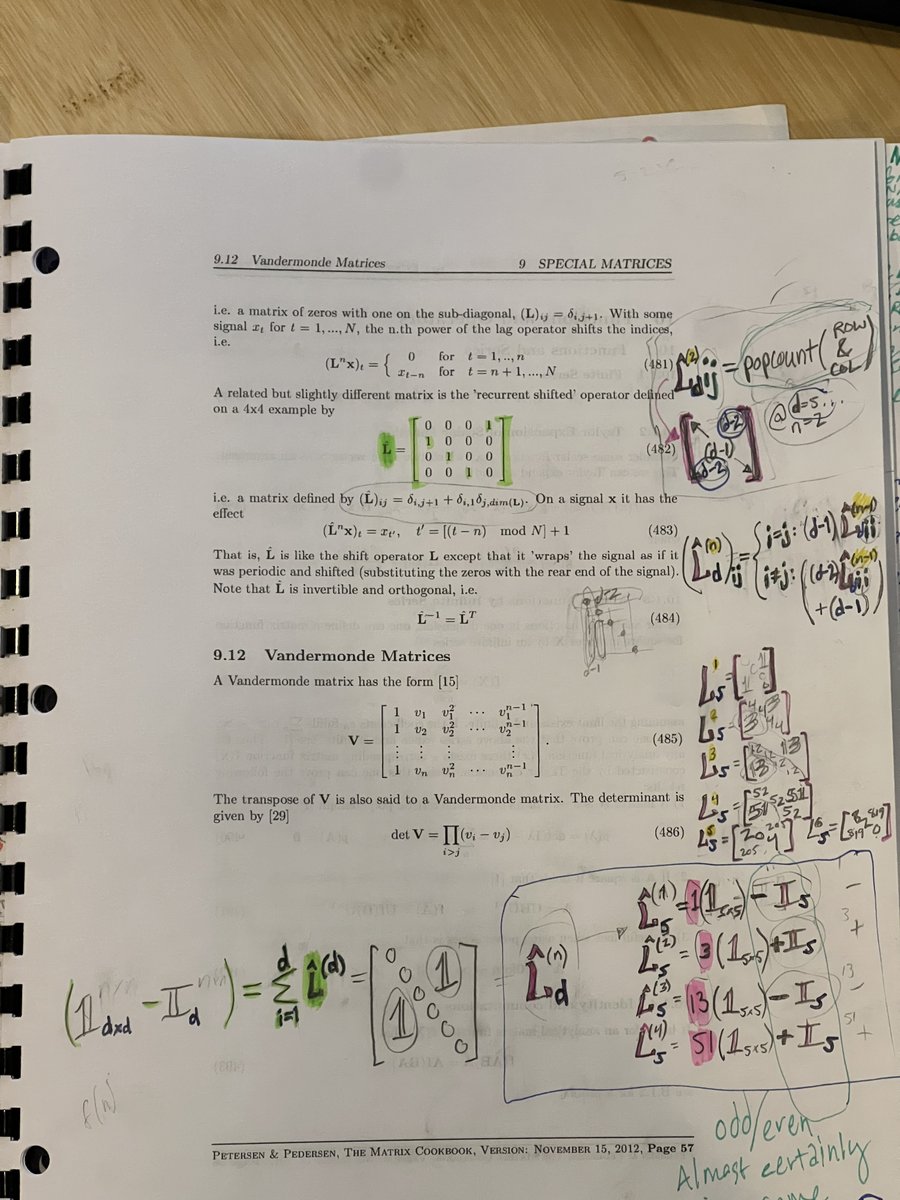 9.12 Vandermonde Matrices
9 SPECIAL MATRICES
i.e. a matrix of zeros with one on the sub-diagonal, (L)ij = δi,j+1. With some
signal xt for t = 1, ..., N, the n.th power of the lag operator shifts the indices,
i.e.
(Lⁿx)t = { 0 for t = 1, .., n
xt−n for t = n + 1, ..., N
(481)
A related but slightly different matrix is the 'recurrent shifted' operator defined
on a 4x4 example by
L̂ = [ 0 0 0 1
1 0 0 0
0 1 0 0
0 0 1 0 ]
(482)
i.e. a matrix defined by (L̂)ij = δi,j+1 + δi,1δj,dim(L). On a signal x it has the
effect
(L̂ⁿx)t = xt′, t′ = [(t − n) mod N] + 1
(483)
That is, L̂ is like the shift operator L except that it 'wraps' the signal as if it
was periodic and shifted (substituting the zeros with the rear end of the signal).
Note that L̂ is invertible and orthogonal, i.e.
L̂⁻¹ = L̂ᵀ
(484)
9.12 Vandermonde Matrices
A Vandermonde matrix has the form [15]
V = [ 1 v1 v1² ··· v1ⁿ⁻¹
1 v2 v2² ··· v2ⁿ⁻¹
⋮ ⋮ ⋮ ⋮
1 vn vn² ··· vnⁿ⁻¹ ].
(485)
The transpose of V is also said to a Vandermonde matrix. The determinant is
given by [29]
det V = ∏i>j (vi − vj)
(486)
L̂d ij (2) = popcount(ROW
&
COL)
@ d=5...
n=2
[ d-2
(d-1)
d-2 ]
(L̂d(n))ij = { i=j: (d-1) L̂ij(n-1)
i≠j: (d-2) L̂ij(n-1)
+(d-1)
d-1
L5¹ =
L5² = [ 4 4 3
3 4 4 ]
L5³ = [ 12 12 13
13 12 12 ]
L5⁴ = [ 52 52 51
51 52 ]
L5⁵ = [ 204
205 ] L5⁶ = [ 819
819 ]
(𝟙dxd − 𝕀d) = Σi=1 d L̂(d) = [ 0 𝟙
𝟙 0 ] = L̂d(n)
L̂5(1) = 1(𝟙5x5) − 𝕀5
L̂5(2) = 3(𝟙5x5) + 𝕀5
L̂5(3) = 13(𝟙5x5) − 𝕀5
L̂5(4) = 51(𝟙5x5) + 𝕀5
−
3 +
13 −
51 +
f(n)
odd/even
Almost certainly
PETERSEN & PEDERSEN, THE MATRIX COOKBOOK, VERSION: NOVEMBER 15, 2012, Page 57